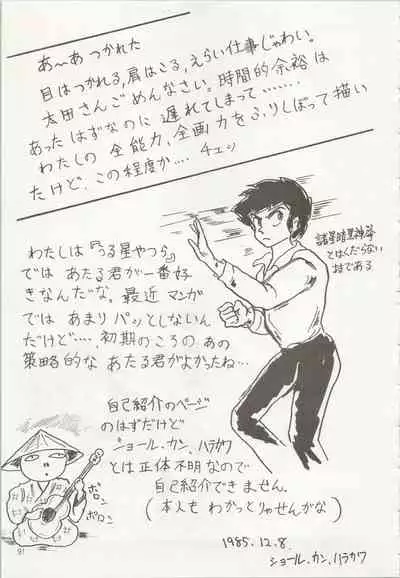 あ〜あ つかれた
目はつかれる,肩はこる,えらい仕事じゃわい。
太田さんごめんなさい。時間的余裕は
あったはずなのに 遅れてしまって・・・・・・・
わたしの 全能力、全画力をふりしぼって描い
たけど、この程度か・・・・ チェッ
諸星暗黒神拳
とはくだらない
技である
わたしは『うる星やつら』
では あたる君が一番好
きなんだな。最近 マンガ
では あまり パッとしないん
だけど・・・・、初期のころの あの
策略的な あたる君がよかったね・・・
自己紹介のページ
のはずだけど
ショール・カン、ハラカワ
とは正体不明なので
自己紹介できません。
(本人も わかっとりゃせんがな)
ボロン
ボロン
91
1985.12.8.
ショール・カン・ハラカワ